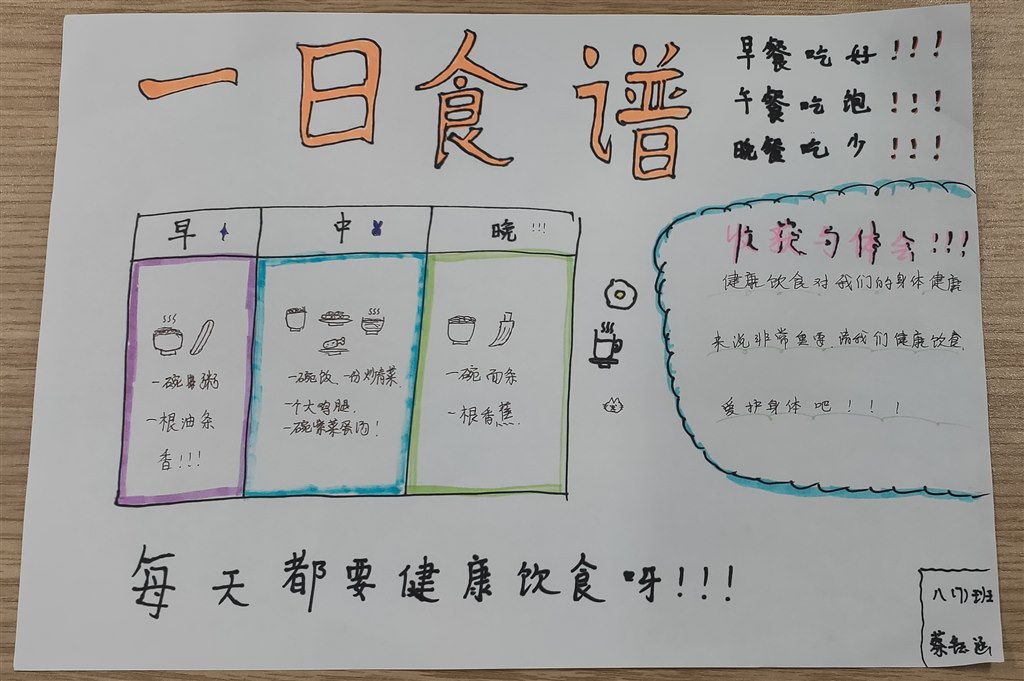 一日食谱
早餐吃好!!!
午餐吃饱!!!
晚餐吃少!!!
早
中
晚!!!
一碗粥
一根油条
香!!!
一碗饭、一份炒青菜
一个大鸡腿,
一碗紫菜蛋汤!
一碗面条
一根香蕉.
收获与体会!!!
健康饮食对我们的身体健康
来说非常重要,请我们健康饮食
爱护身体吧!!!
每天都要健康饮食呀!!!
八(7)班
蔡